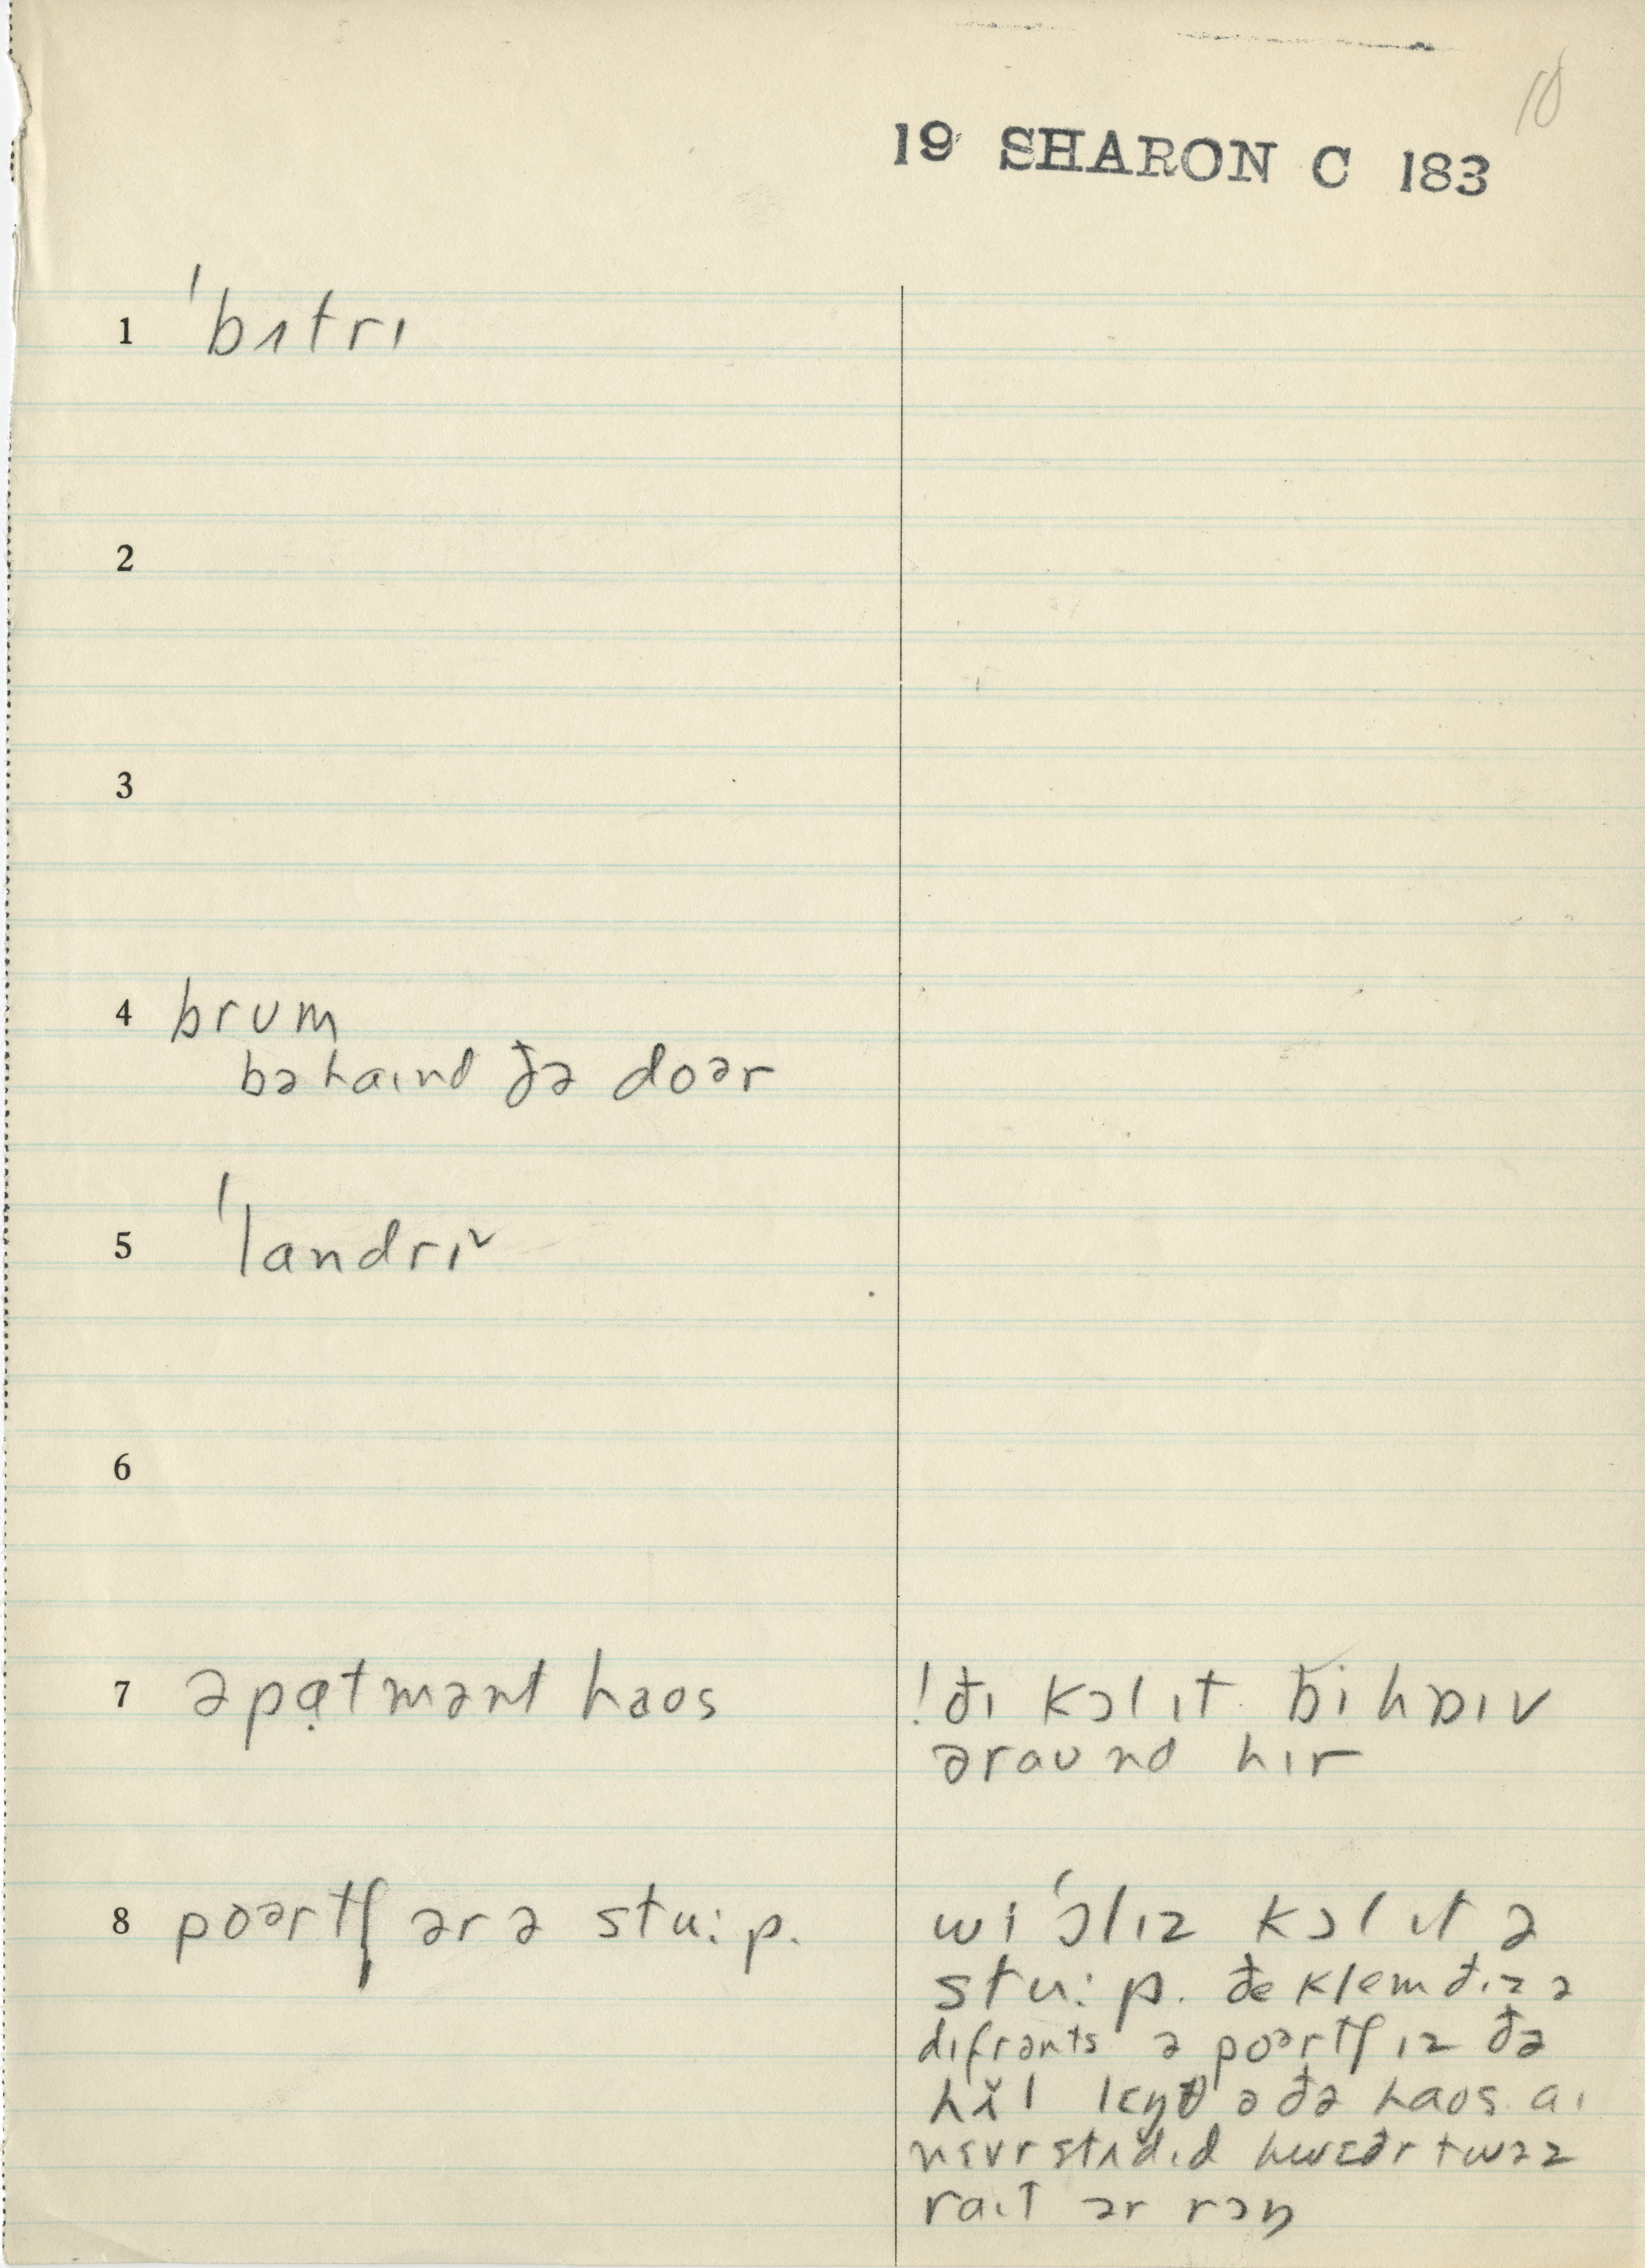 10
19 SHARON C 183
1 ˈbʌtrɪ
2
3
4 brʊm
bəhaɪnd ðə doər
5 ˈlandrɪ˅
6
7 əpạtmənt haos
! ðɪ kɔl ɪt bi hɒɪv
əraʊnd hɪr
8 poərtʃ ər ə stu:p.
wi ˈɔlɪz kɔl ɪt ə
stu:p. ðe klem ðɪz ə
dɪfrənts ə poərtʃ ɪz ðə
lɛŋθ ə ðə haos. aɪ
nɛvr stʌdɪd hwɛðr twəz
raɪt ər rɔŋ